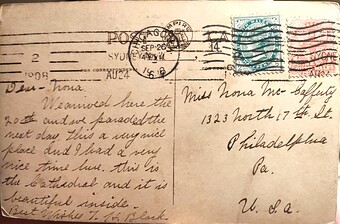 POS
CA
SYDNEY
AU 24
2
1908
CHICAGO
SEP 26
1908
14
Dear Nona
We arrived here the
20th and we paraded the
next day this is a very nice
place and I had a very
nice time here. this is
the Cathedral and it is
beautiful inside.
Best Wishes T. H. Black
Miss Nona Mc Cafferty
1323 North 17th St.
Philadelphia
Pa.
U. S. a